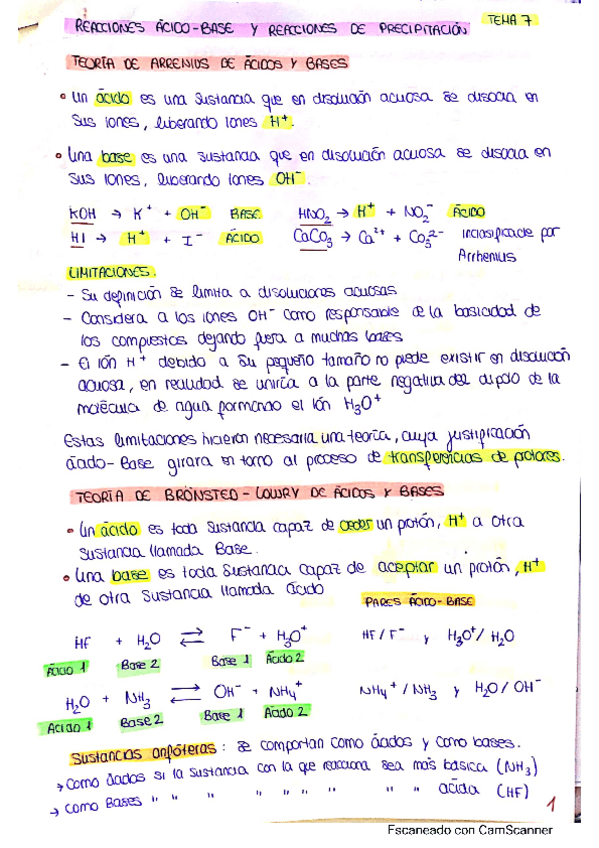 REACCIONES ÁCIDO-BASE Y REACCIONES DE PRECIPITACIÓN TEMA 7
TEORÍA DE ARRENIUS DE ÁCIDOS Y BASES
• Un ácido es una sustancia que en disolución acuosa se disocia en
sus iones, liberando iones H⁺.
• Una base es una sustancia que en disolución acuosa se disocia en
sus iones, liberando iones OH⁻.
KOH → K⁺ + OH⁻ BASE HNO₂ → H⁺ + NO₂⁻ ÁCIDO
HI → H⁺ + I⁻ ÁCIDO CaCO₃ → Ca²⁺ + CO₃²⁻ inclasificable por
Arrhenius
LIMITACIONES.
- Su definición se limita a disoluciones acuosas
- Considera a los iones OH⁻ como responsable de la basicidad de
los compuestos dejando fuera a muchas bases
- El ión H⁺ debido a su pequeño tamaño no puede existir en disolución
acuosa, en realidad se uniría a la parte negativa del dipolo de la
molécula de agua formando el ión H₃O⁺
Estas limitaciones hicieron necesaria una teoría, cuya justificación
ácido-Base girara en torno al proceso de transferencias de protones.
TEORÍA DE BRÖNSTED-LOWRY DE ÁCIDOS Y BASES
• Un ácido es toda sustancia capaz de ceder un protón, H⁺ a otra
sustancia llamada Base.
• Una base es toda sustancia capaz de aceptar un protón, H⁺
de otra sustancia llamada ácido
PARES ÁCIDO-BASE
HF + H₂O ⇄ F⁻ + H₃O⁺ HF/F⁻ y H₃O⁺/H₂O
Ácido 1 Base 2 Base 1 Ácido 2
H₂O + NH₃ ⇄ OH⁻ + NH₄⁺ NH₄⁺/NH₃ y H₂O/OH⁻
Ácido 1 Base 2 Base 1 Ácido 2
Sustancias anfóteras: se comportan como ácidos y como bases.
→ como ácidos si la sustancia con la que reacciona sea más básica (NH₃)
→ como Bases " " " " " " " " " ácida (HF)
1
Escaneado con CamScanner